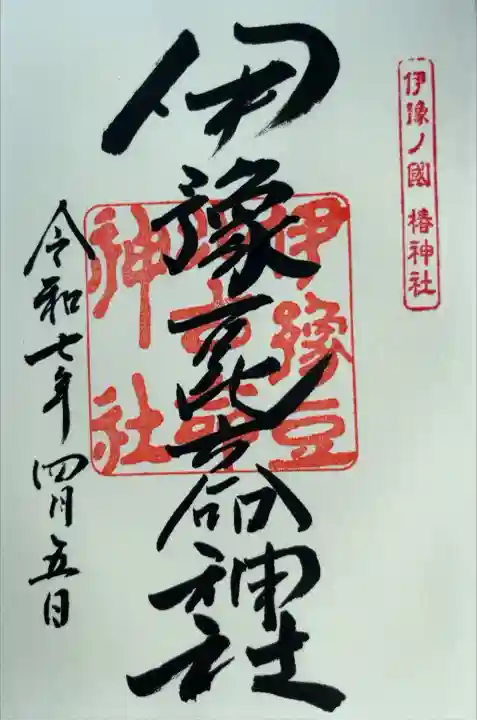 伊豫ノ國 椿神社
伊豫豆比古命神社
伊豫豆
比古命
神社
令和七年 四月五日